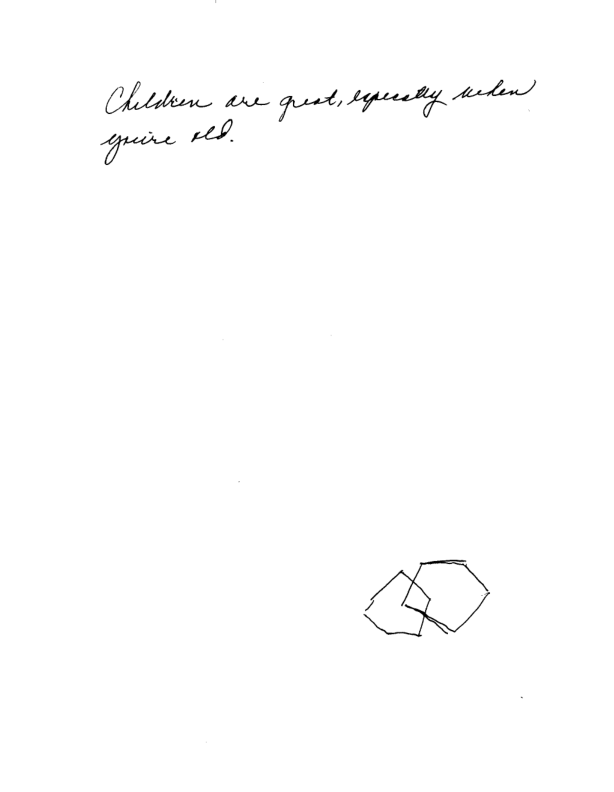 Children are great, especially when
you're old.